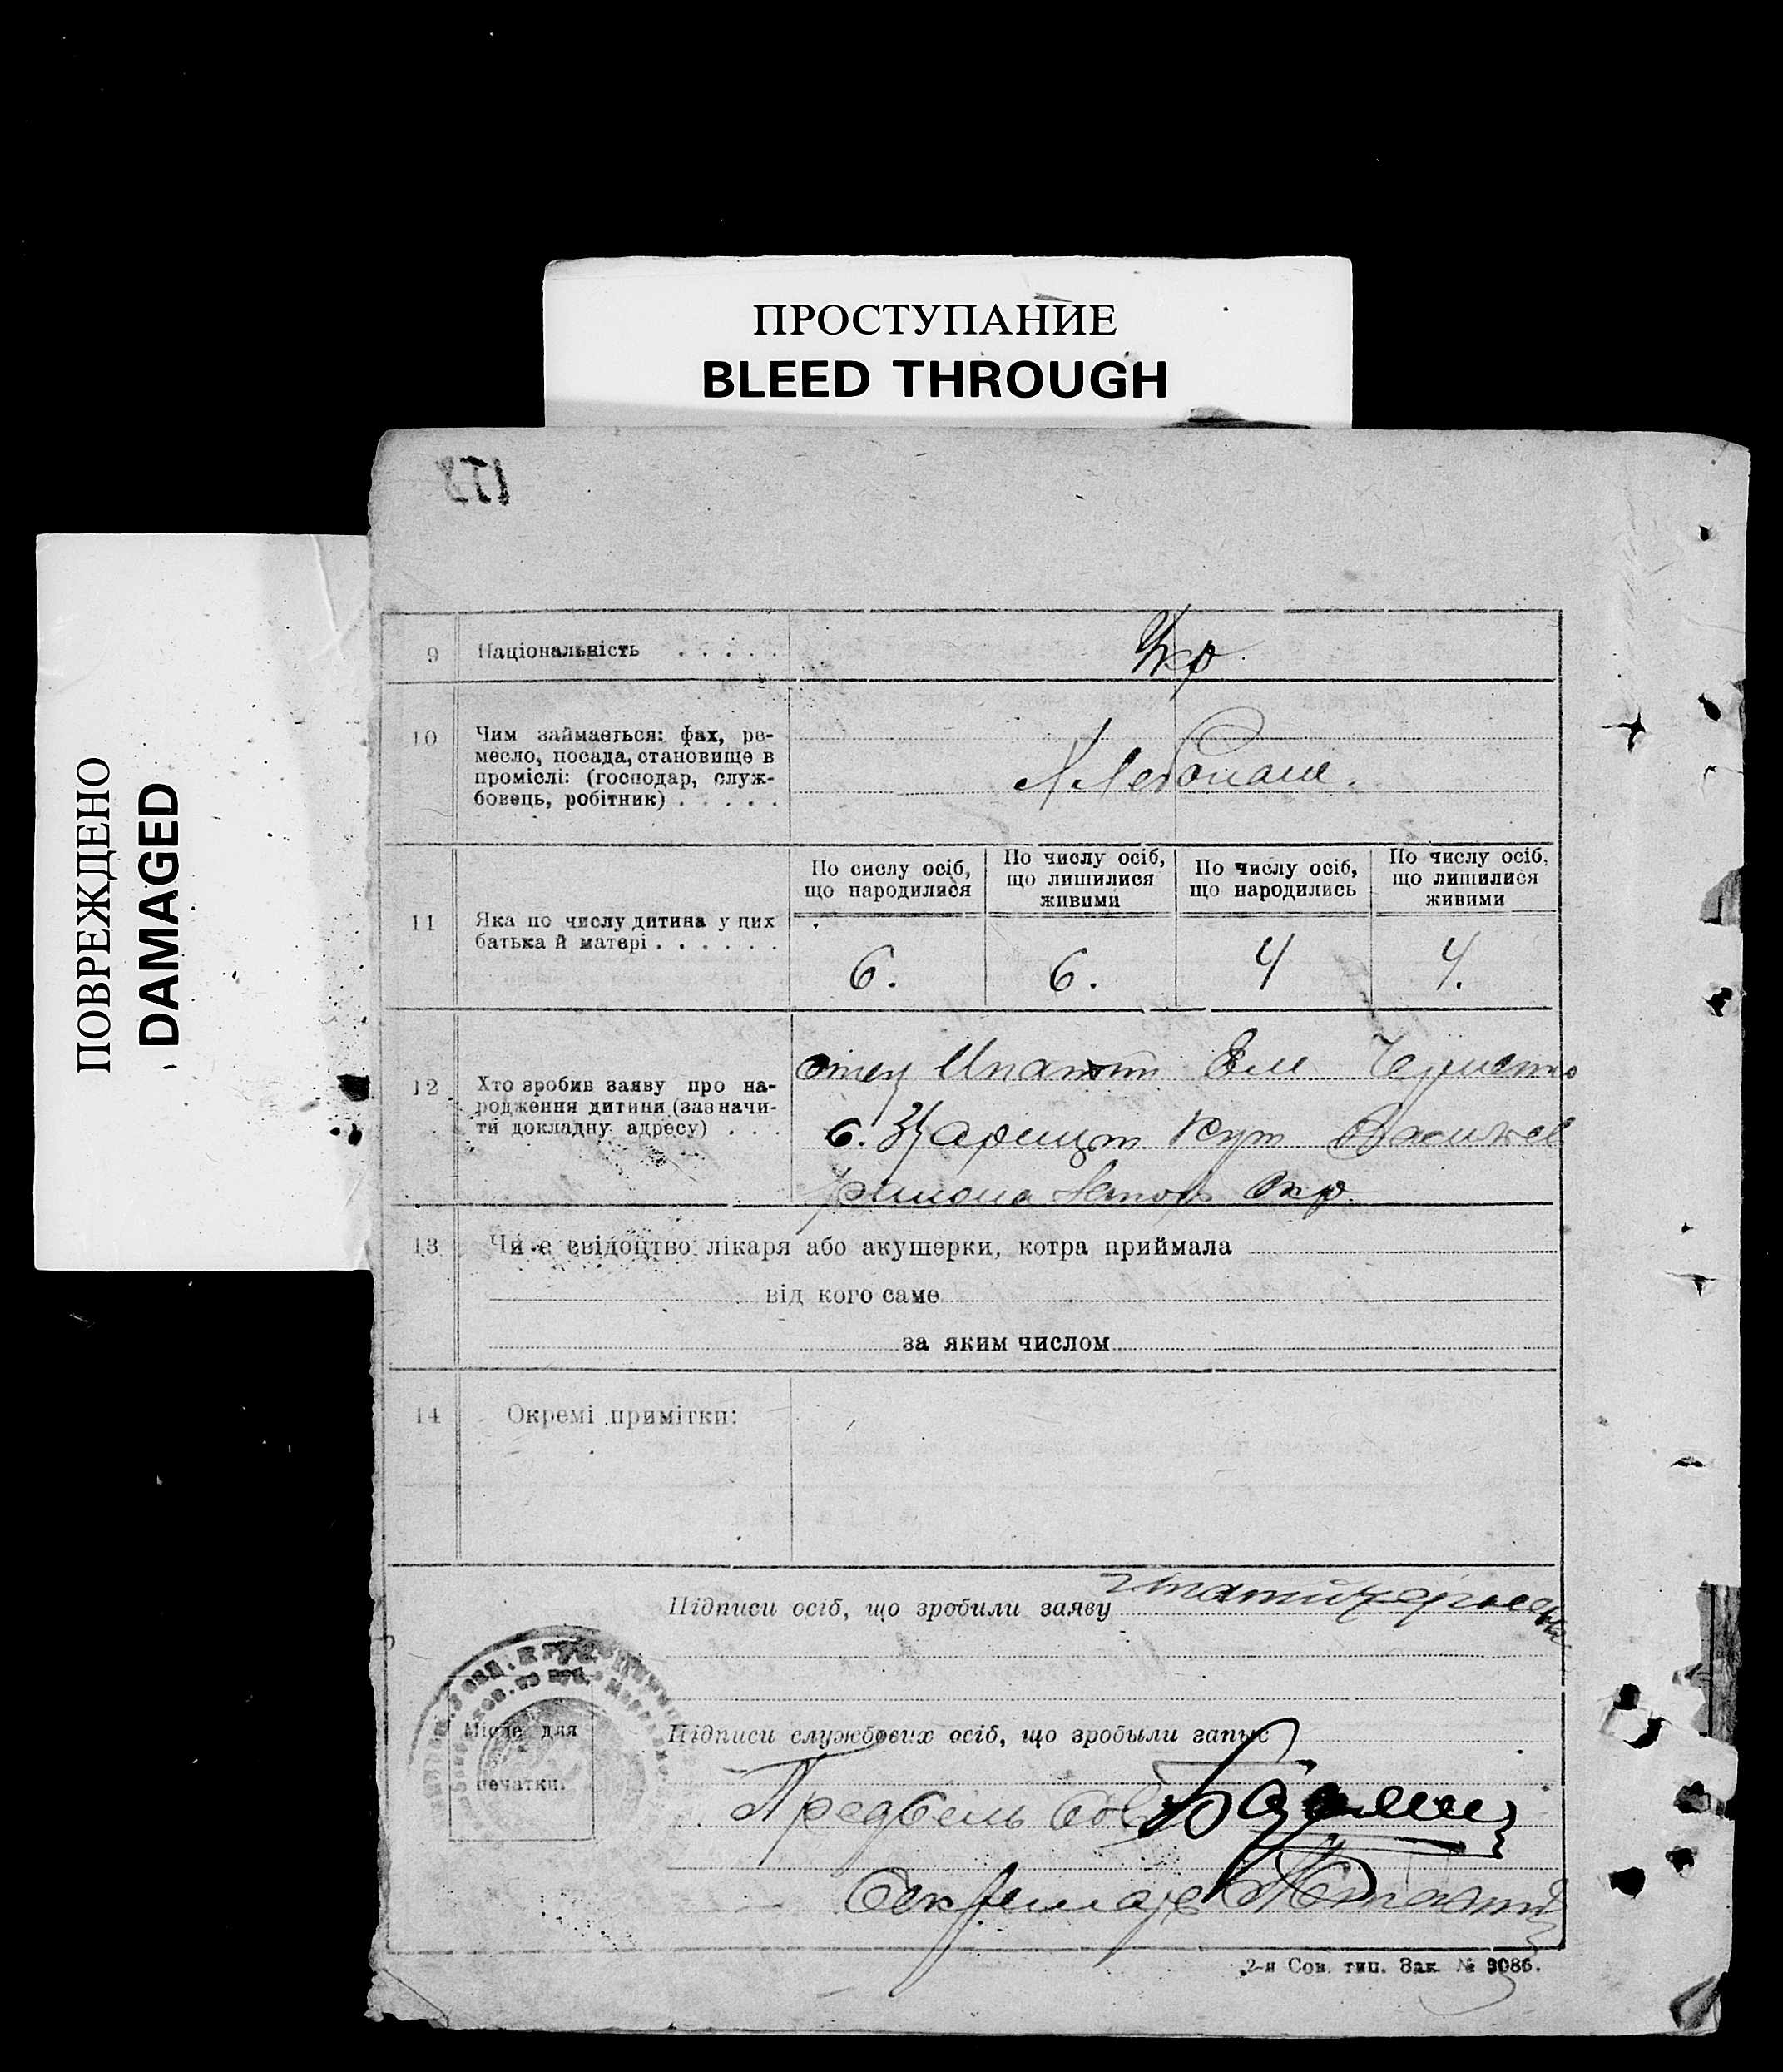 ПРОСТУПАНИЕ
BLEED THROUGH
ПОВРЕЖДЕНО
DAMAGED
9 Національність . . . . .
Укр
10 Чим займається: фах, ре-
месло, посада, становище в
проміслі: (господар, служ-
бовець, робітник) . . . . .
Хлебопаш.
11 Яка по числу дитина у цих
батька й матері . . . . . .
По сислу осіб,
що народилися
По числу осіб,
що лишилися
живими
По числу осіб,
що народились
По числу осіб,
що лишилися
живими
6. 6. 4 4.
12 Хто зробив заяву про на-
родження дитини (зазначи-
ти докладну адресу) . . .
отец Ипат
с. Царицын Кут
Окр.
13 Чи є свідоцтво лікаря або акушерки, котра приймала
від кого саме
за яким числом
14 Окремі примітки:
Підписи осіб, що зробили заяву
Місце для
печатки.
Підписи службових осіб, що зробыли запыс
Секретарь
2-я Сов. тип. Зак. № 3086.